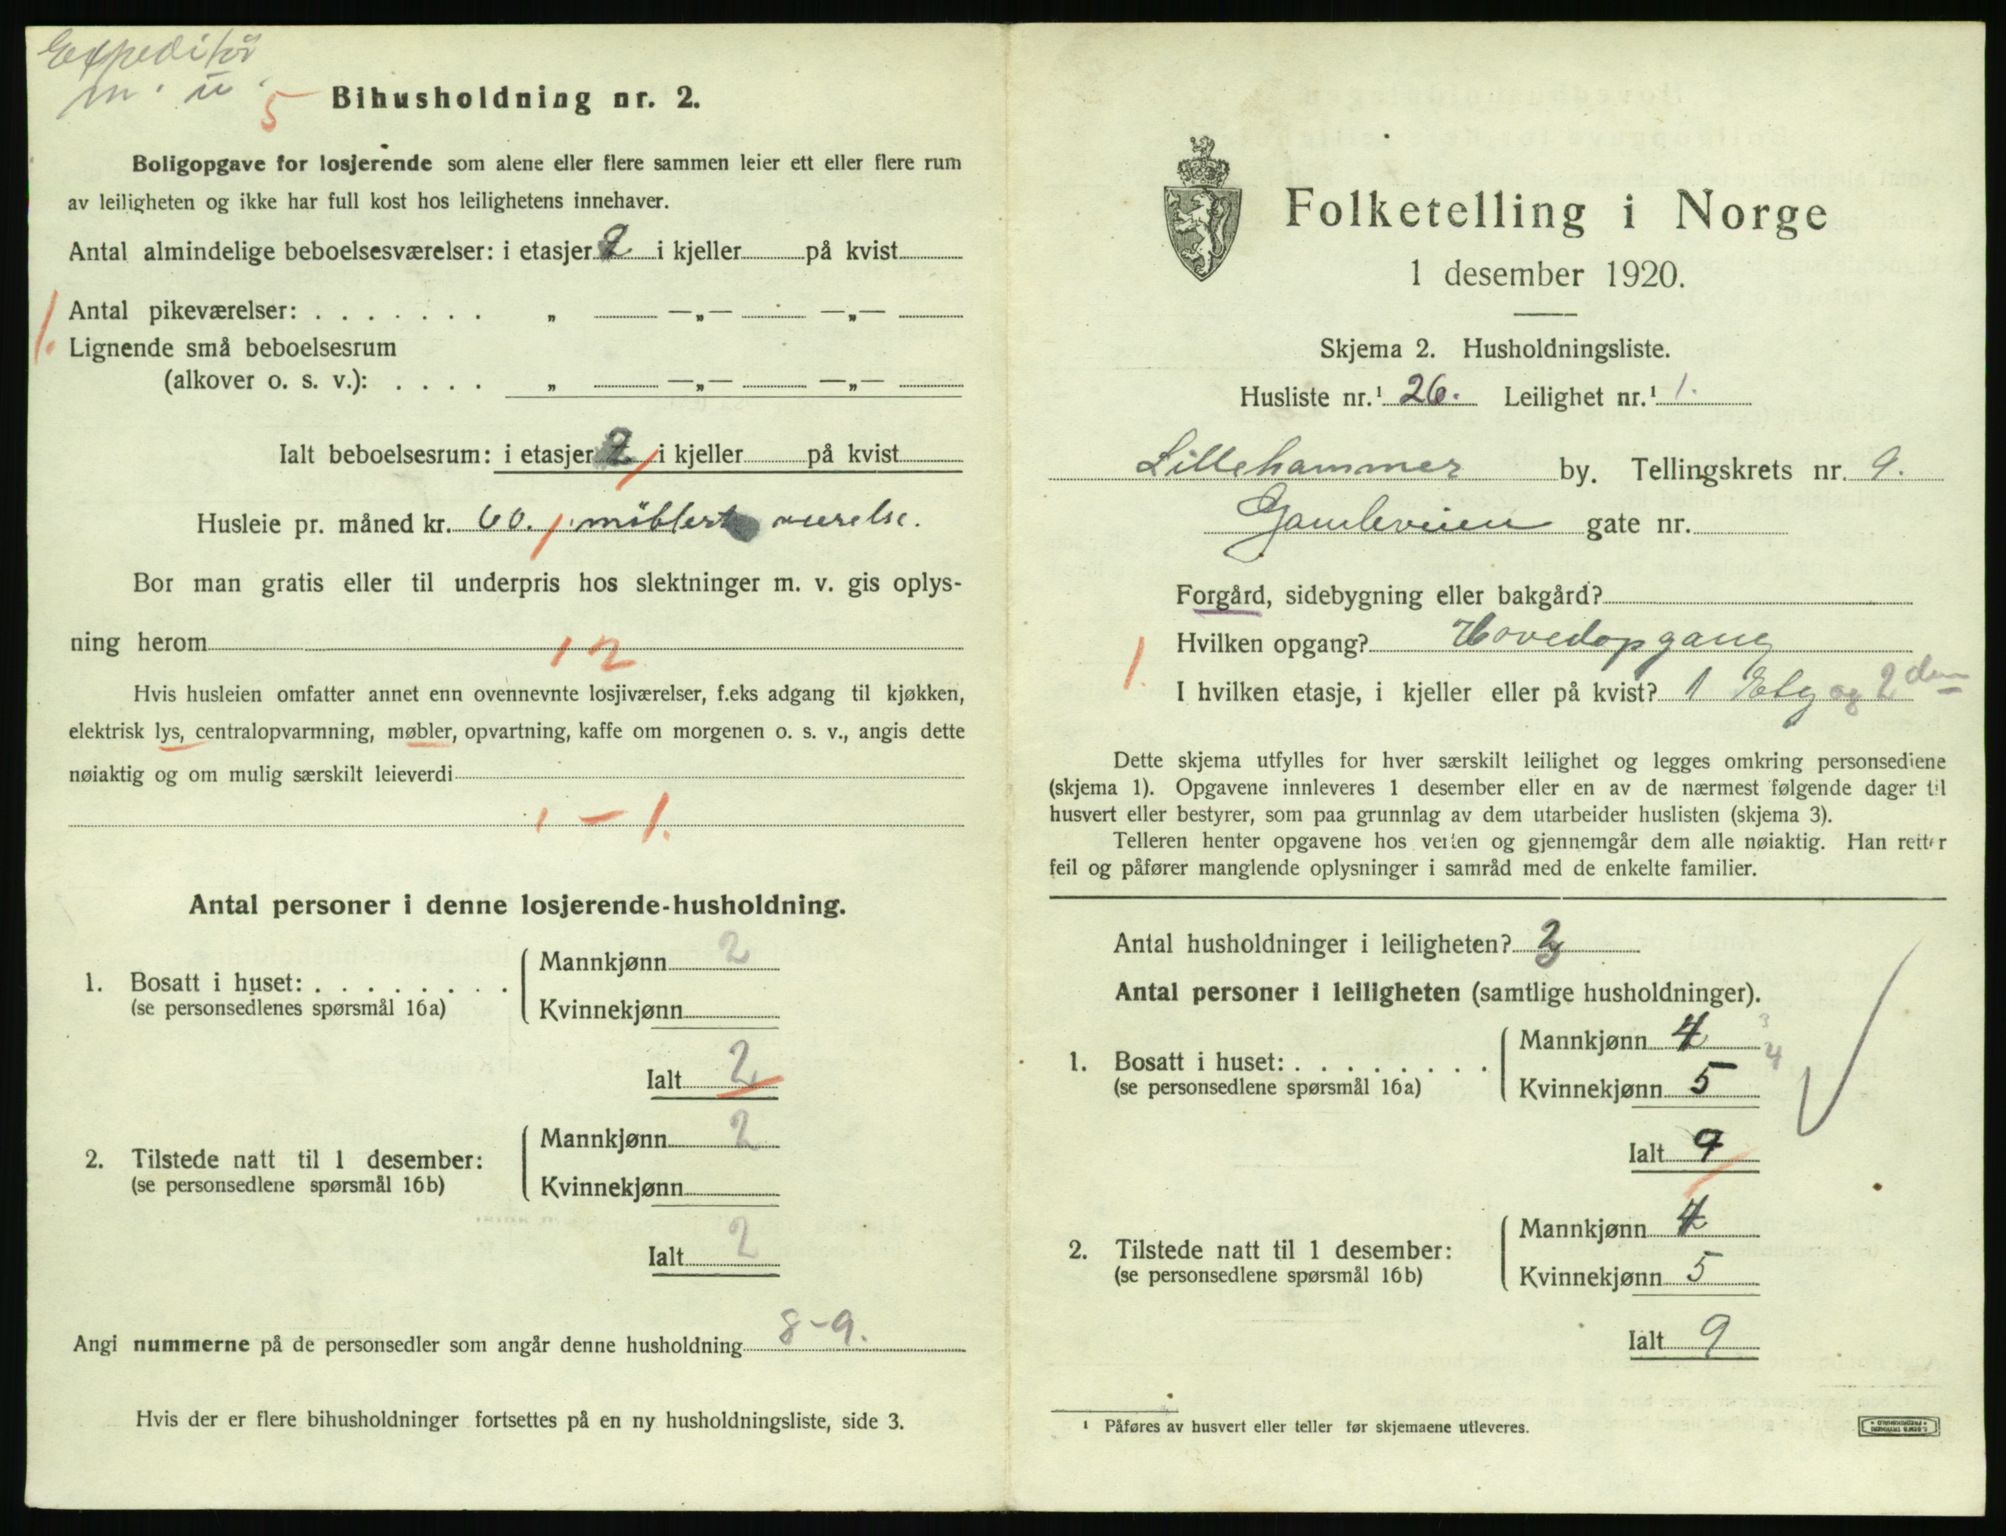 Expeditør
m. u.
5
Bihusholdning nr. 2.
Boligopgave for losjerende som alene eller flere sammen leier ett eller flere rum
av leiligheten og ikke har full kost hos leilighetens innehaver.
Antal almindelige beboelsesværelser: i etasjer 2 i kjeller på kvist
Antal pikeværelser: . . . . . . . „ —„— —„—
1.
Lignende små beboelsesrum
(alkover o. s. v.): . . . . „ —„— —„—
Ialt beboelsesrum: i etasjer 2 i kjeller på kvist
Husleie pr. måned kr. 60. møblert værelse.
Bor man gratis eller til underpris hos slektninger m. v. gis oplys-
ning herom
12
Hvis husleien omfatter annet enn ovennevnte losjiværelser, f.eks adgang til kjøkken,
elektrisk lys, centralopvarmning, møbler, opvartning, kaffe om morgenen o. s. v., angis dette
nøiaktig og om mulig særskilt leieverdi
1 – 1.
Antal personer i denne losjerende-husholdning.
1. Bosatt i huset: . . . . . . . .
(se personsedlenes spørsmål 16a)
Mannkjønn 2
Kvinnekjønn
Ialt 2
2. Tilstede natt til 1 desember:
(se personsedlene spørsmål 16b)
Mannkjønn 2
Kvinnekjønn
Ialt 2
Angi nummerne på de personsedler som angår denne husholdning 8-9.
Hvis der er flere bihusholdninger fortsettes på en ny husholdningsliste, side 3.
Folketelling i Norge
1 desember 1920.
Skjema 2. Husholdningsliste.
Husliste nr.¹ 26. Leilighet nr.¹ 1.
Lillehammer by. Tellingskrets nr. 9.
Gamleveien gate nr.
Forgård, sidebygning eller bakgård?
Hvilken opgang? Hovedopgang
1.
I hvilken etasje, i kjeller eller på kvist? 1 Etg og 2den
Dette skjema utfylles for hver særskilt leilighet og legges omkring personsedlene
(skjema 1). Opgavene innleveres 1 desember eller en av de nærmest følgende dager til
husvert eller bestyrer, som paa grunnlag av dem utarbeider huslisten (skjema 3).
Telleren henter opgavene hos verten og gjennemgår dem alle nøiaktig. Han retter
feil og påfører manglende oplysninger i samråd med de enkelte familier.
Antal husholdninger i leiligheten?
Antal personer i leiligheten (samtlige husholdninger).
1. Bosatt i huset: . . . . . . . . .
(se personsedlene spørsmål 16a)
Mannkjønn 4 3
Kvinnekjønn 5 4
Ialt 9
2. Tilstede natt til 1 desember:
(se personsedlene spørsmål 16b)
Mannkjønn 4
Kvinnekjønn 5
Ialt 9
¹ Påføres av husvert eller teller før skjemaene utleveres.